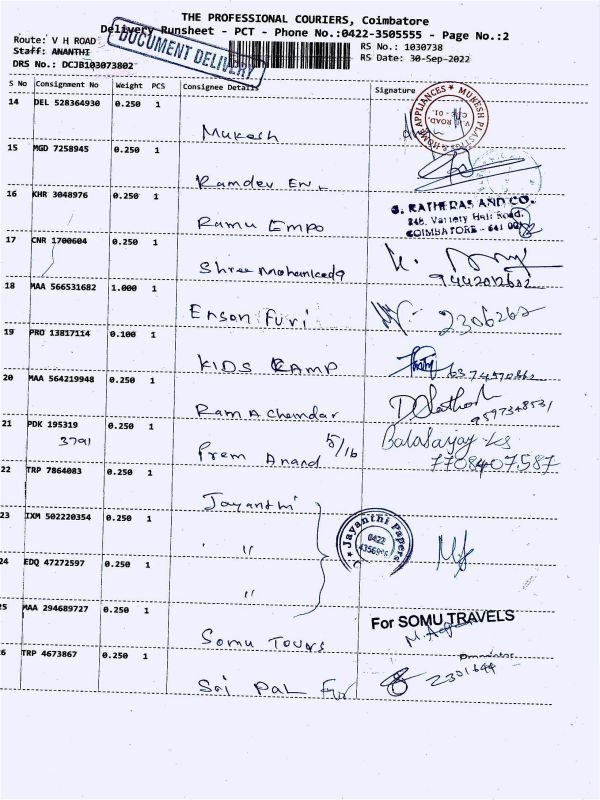 THE PROFESSIONAL COURIERS, Coimbatore
Delivery Runsheet - PCT - Phone No.:0422-3505555 - Page No.:2
Route: V H ROAD
RS No.: 1030738
Staff: ANANTHI
RS Date: 30-Sep-2022
DRS No.: DCJB103073802
DOCUMENT DELIVERY
S No Consignment No Weight PCS Consignee Details Signature
14 DEL 528364930 0.250 1
Mukesh
HOME APPLIANCES * MUKESH PLASTICS
15 MGD 7258945 0.250 1
Ramdev En.
16 KHR 3048976 0.250 1
Ramu Empo
S. RATHERAS AND CO.
248, Variety Hall Road,
COIMBATORE - 641 001
17 CNR 1700604 0.250 1
Shree Mohankada
18 MAA 566531682 1.000 1
Enson Furi
2306262
19 PRO 13817114 0.100 1
KIDS CAMP
20 MAA 564219948 0.250 1
Ram A Chandar
9597348531
21 PDK 195319 0.250 1
3791
Prem Anand 5/16
Balasanjay KS
7708407587
22 TRP 7864083 0.250 1
Jayanthi
23 IXM 502220354 0.250 1
"
Jayanthi Papers
0422
24 EDQ 47272597 0.250 1
"
25 MAA 294689727 0.250 1
Somu Tours
For SOMU TRAVELS
26 TRP 4673867 0.250 1
Sri Pal Fur
2301644